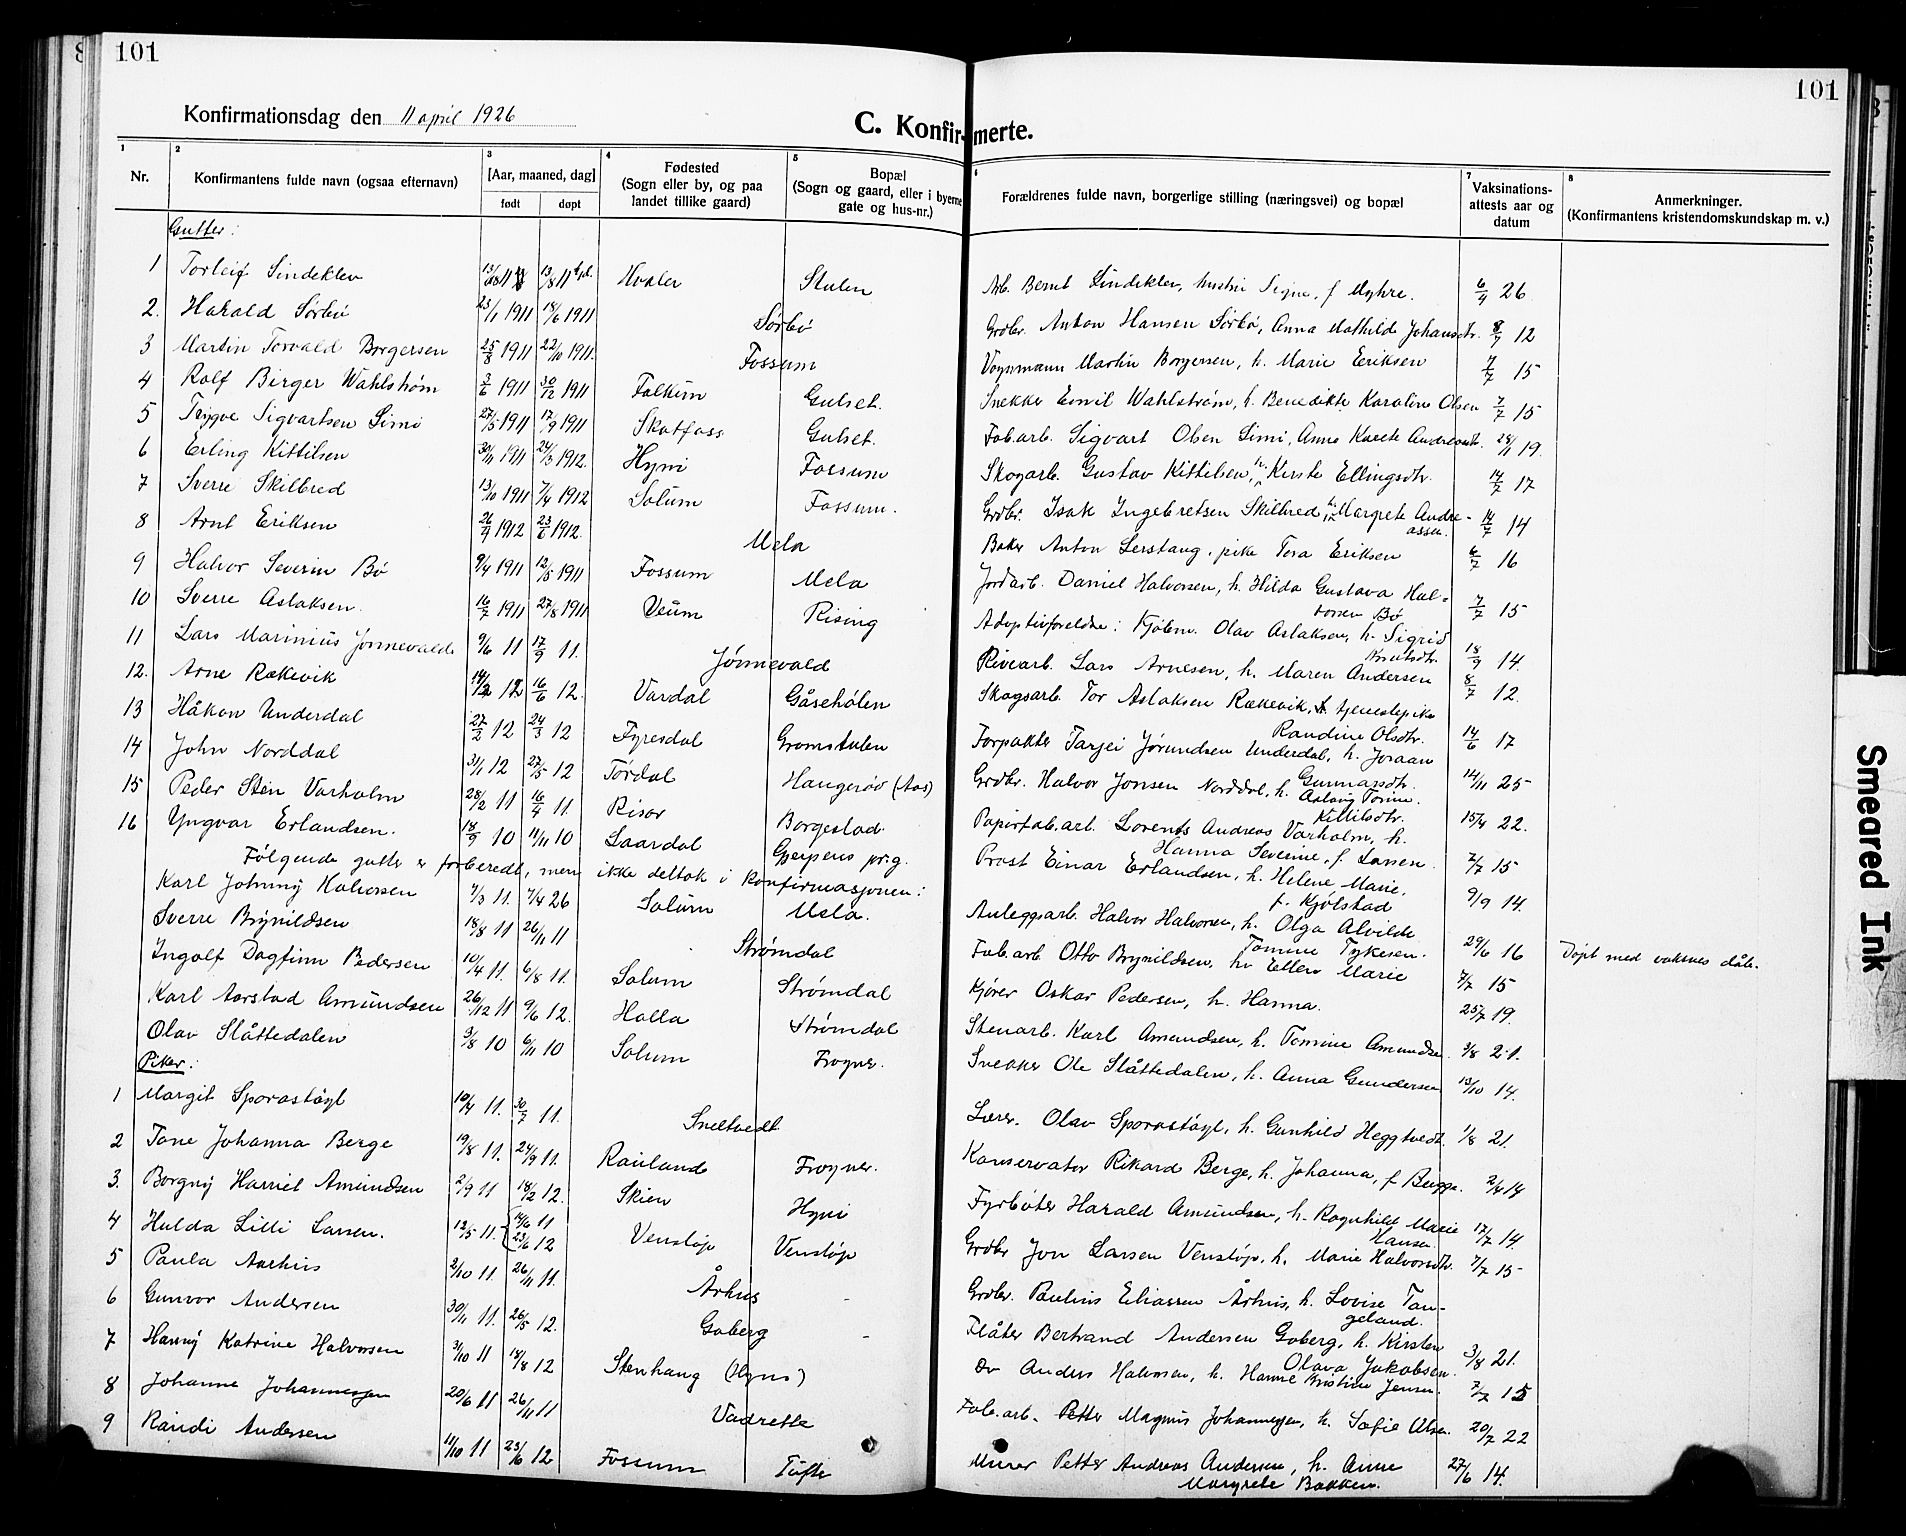 101
101
Konfirmationsdag den 11 april 1926
C. Konfirmerte.
1 Nr.
2 Konfirmantens fulde navn (ogsaa efternavn)
3 [Aar, maaned, dag] født døpt
4 Fødested (Sogn eller by, og paa landet tillike gaard)
5 Bopæl (Sogn og gaard, eller i byerne gate og hus-nr.)
6 Forældrenes fulde navn, borgerlige stilling (næringsvei) og bopæl
7 Vaksinations-attests aar og datum
8 Anmerkninger. (Konfirmantens kristendomskundskap m. v.)
Gutter:
1 Torleif Sindeklev 13/8 11 Hvaler Stulen Arb. Bernt Sindeklev, hustru Signe, f Myhre. 6/9 26
2. Harald Sørbø 23/1 1911 18/6 1911 Sørbø Grdbr. Anton Hansen Sørbø, Anna Mathilde Johansdtr. 8/7 12
3 Martin Torvald Borgersen 25/8 1911 22/10 1911. Fossum Vognmann Martin Borgersen, h. Marie Eriksen 7/7 15
4 Rolf Birger Wahlstrøm 3/6 1911 30/12 1911 Falkum Gulset. Snekker Emil Wahlstrøm, h. Benedikte Karoline Olsen 7/7 15
5 Trygve Sigvartsen Simi 27/5 1911 17/9 1911 Skotfoss Gulset. Fab.arb. Sigvart Olsen Simi, Anne Karete Andreasdt. 28/11 19.
6 Erling Kittilsen 30/11 1911 24/3 1912. Hyni Fossum Skogarb. Gustav Kittilsen, h. Kirste Ellingsdtr. 14/7 17
7 Sverre Skilbred 13/10 1911 7/4 1912 Solum Fossum. Grdbr. Isak Ingebretsen Skilbred, h. Margrete Andre-
assen. 14/7 14
8 Arnt Eriksen 26/9 1912 23/6 1912. Mela Baker Anton Lerstang, pike Tora Eriksen 6/7 16
9 Halvor Severin Bø 9/4 1911 12/5 1911 Fossum Mela Jordarb. Daniel Halvorsen, h. Hilda Gustava Hal-
vorsen Bø 7/7 15
10 Sverre Aslaksen. 16/7 1911 27/8 1911 Veum Rising Adoptivforeldre: Kjøbm. Olav Aslaksen, h. Sigrid
Knutsdtr. 18/9 14.
11 Lars Marinius Jønnevald 9/6 11 17/9 11. Jønnevald Rivearb. Lars Arnesen, h. Maren Andersen 8/7 12.
12. Arne Rækevik 12 16/6 12. Vardal Gåsehølen Skogsarb. Tor Aslaksen Rækevik, tjenestepike
Randine Olsdtr. 14/6 17
13 Håkon Underdal 27/2 12 24/3 12 Fyresdal Gromstulen Forpakter Tarjei Jørundsen Underdal, h. Joraan
Gunnarsdtr. 14/11 25
14 John Norddal 31/1 12 27/5 12 Tørdal Haugerød (Aas) Grdbr. Halvor Jonsen Norddal, h. Aslaug Tomine
Kittilsdtr. 15/4 22.
15 Peder Sten Varholm 28/2 11 16/4 11. Risør Borgestad. Papirfab.arb. Lorents Andreas Varholm, h.
Hanna Severine, f Larsen. 7/7 15
16 Yngvar Erlandsen. 18/9 10 11/11 10 Laardal Gjerpens prg. Prost Einar Erlandsen, h. Helene Marie,
f. Kjølstad 9/9 14.
Følgende gutter er forberedt, men ikke deltok i konfirmasjonen:
Karl Johnny Halvorsen 7/3 11. 7/4 26 Solum Mela. Anleggsarb. Halvor Halvorsen, h. Olga Alvilde
Tomine Tykesen. 29/6 16 Døpt med voksnes dåb.
Sverre Brynildsen 18/8 11 26/11 11 Strømdal Fab.arb. Otto Brynildsen, h. Ellen Marie 7/7 15
Ingolf Dagfinn Pedersen 10/4 11. 6/8 11. Solum Strømdal Kjører Oskar Pedersen, h. Hanna. 25/7 19.
Karl Aarstad Amundsen 26/12 11 9/6 12. Holla Strømdal Stenarb. Karl Amundsen, h. Tomine Amundsen. 3/8 21.
Olav Slåttedalen 3/8 10 6/11 10 Solum Frogner. Snekker Ole Slåttedalen, h. Anna Gundersen 13/10 14.
Piker:
1 Margit Sporastøyl 10/4 11. 30/7 11. Sneltvedt Lærer. Olav Sporastøyl, h. Gunhild Heggtvedt. 1/8 21.
2 Tone Johanna Berge 19/8 11. 24/9 11. Rauland Frogner. Konservator Rikard Berge, h. Johanna, f Bugge. 2/4 14
3. Borgny Harriet Amundsen 2/9 11 18/2 12. Skien Hyni Fyrbøter Harald Amundsen, h. Ragnhild Marie
Hansen. 17/7 14.
4 Hulda Lilli Larsen. 12/5 11. 14/6 11 23/6 12 Venstøp Venstøp Grdbr Jon Larsen Venstøp, h. Marie Halvorsdtr. 7/7 15
5 Paula Aarhus 2/10 11. 26/11 11. Århus - Grdbr. Paulius Eliassen Århus, h. Lovise Tan-
geland.
6 Gunvor Andersen 30/11 11. 26/5 12. Goberg - Flåter Bertrand Andersen Goberg, h. Kirsten
Olava Jakobsen. 3/8 21.
7 Hanny Katrine Halvorsen 31/10 11 18/8 12 Stenhaug (Hyni) Anders Halvorsen, h. Hanne Kristine Jensen. 7/7 15
8 Johanne Johannessen 20/6 11 26/11 11 Vadrette Fab.arb. Petter Magnus Johannessen, h. Sofie Olsen. 20/7 22
9 Randi Andersen 11/10 11 23/6 12 Fossum Tufte Murer Petter Andreas Andersen, h. Anne
Margrete Bakken. 27/6 14.
Smeared Ink